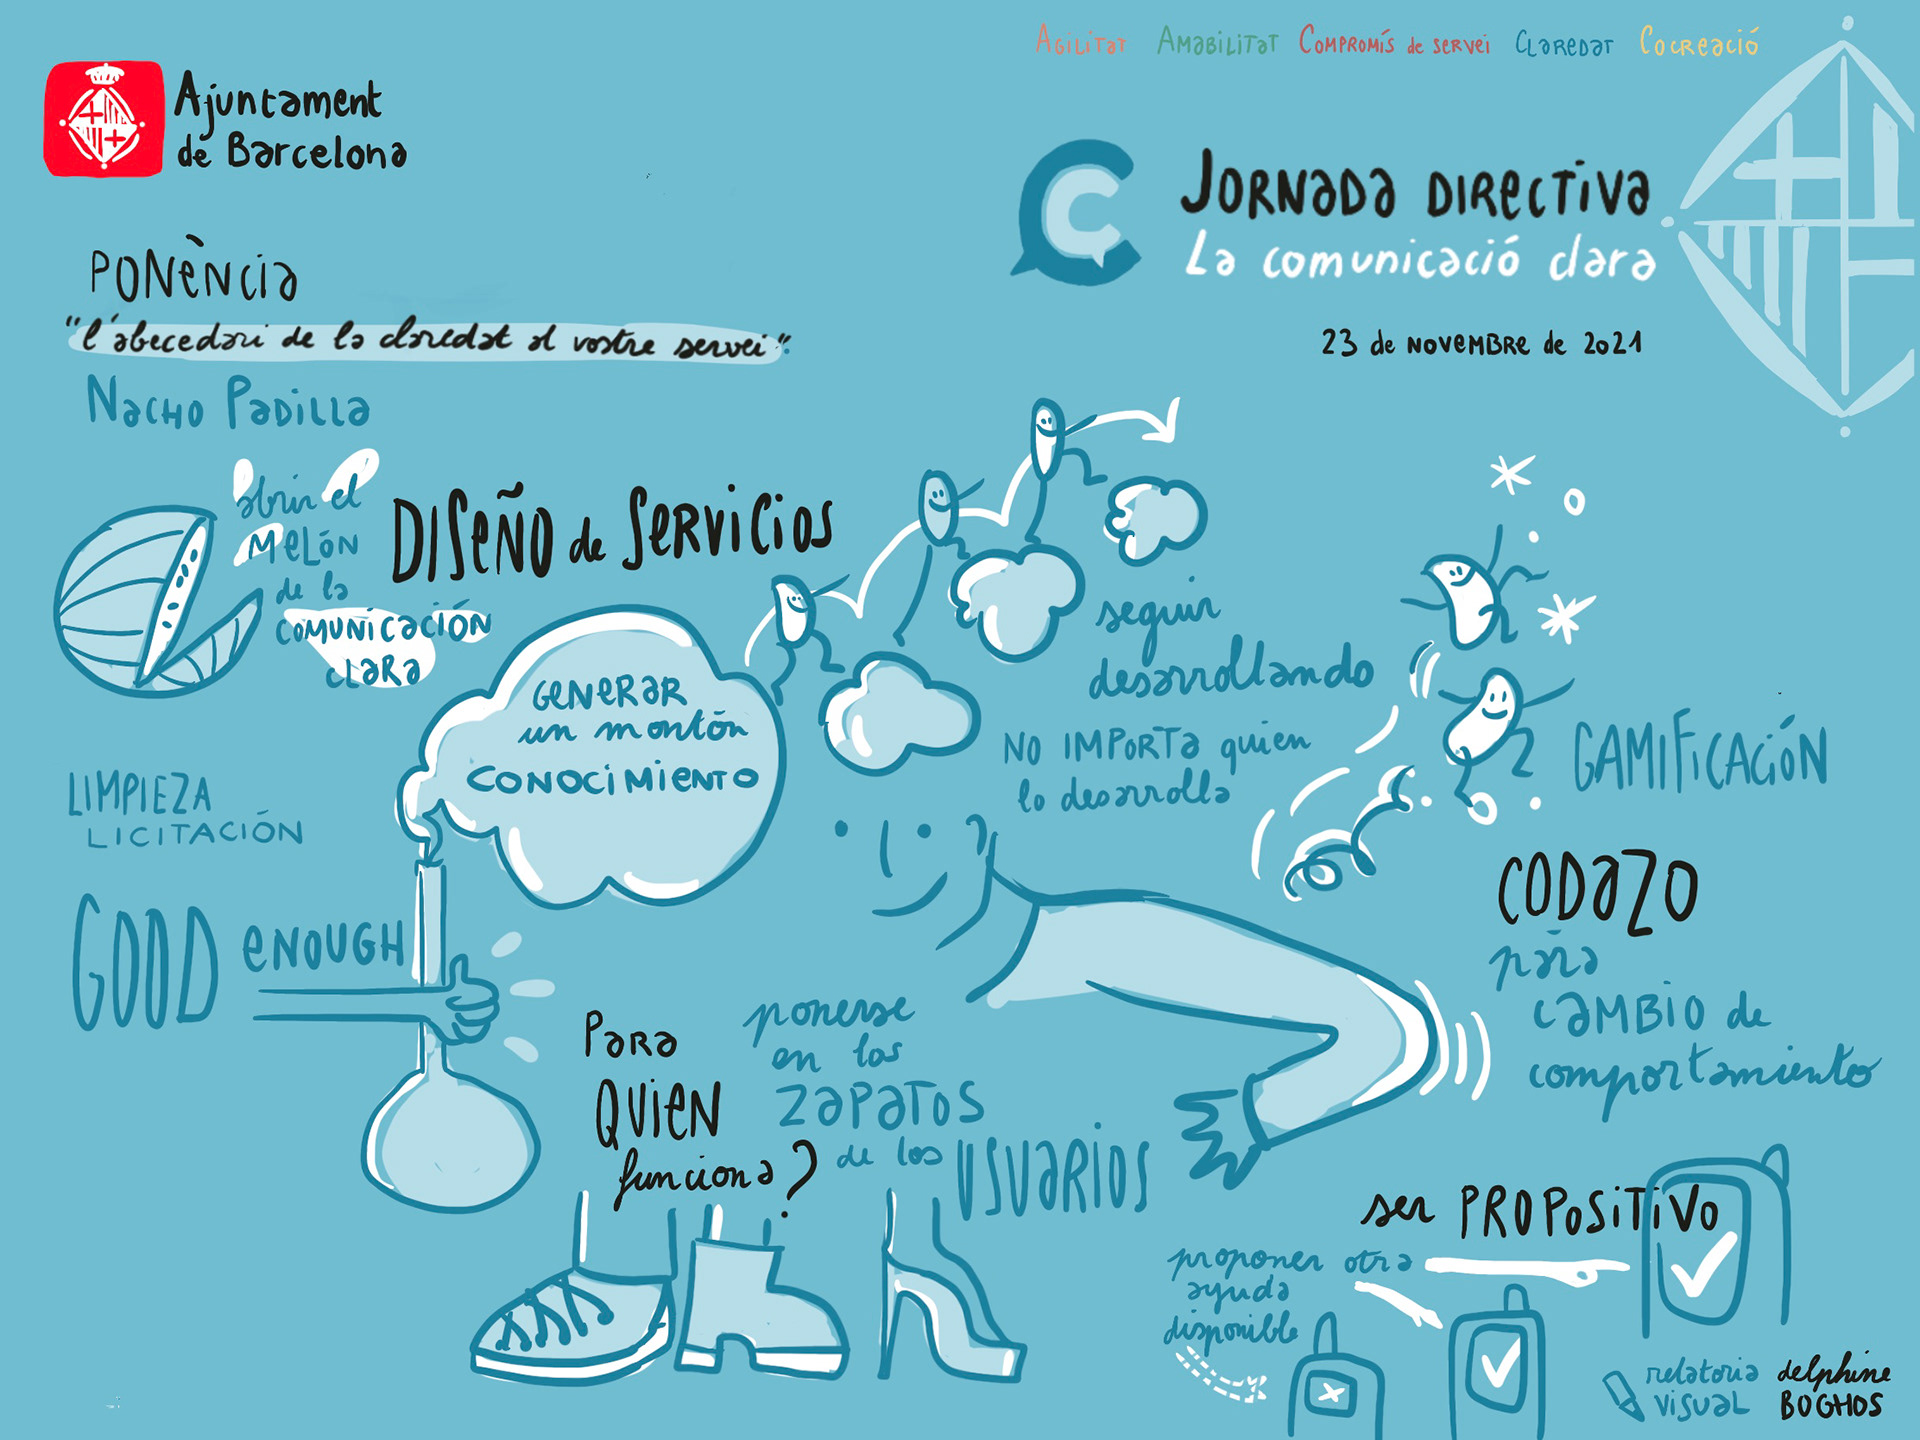 Agilitat Amabilitat Compromís de servei Claredat Cocreació
Ajuntament
de Barcelona
Jornada directiva
La comunicació clara
23 de novembre de 2021
Ponència
"l'abecedari de la claredat al vostre servei".
Nacho Padilla
abrir el
melón
de la
comunicación
clara
Diseño de servicios
Generar
un montón
conocimiento
seguir
desarrollando
no importa quien
lo desarrolla
Gamificación
Limpieza
licitación
Good enough
Codazo
para
cambio de
comportamiento
Para
quien
funciona?
ponerse
en los
zapatos
de los usuarios
ser propositivo
proponer otra
ayuda
disponible
relatoria
visual
delphine
Boghos